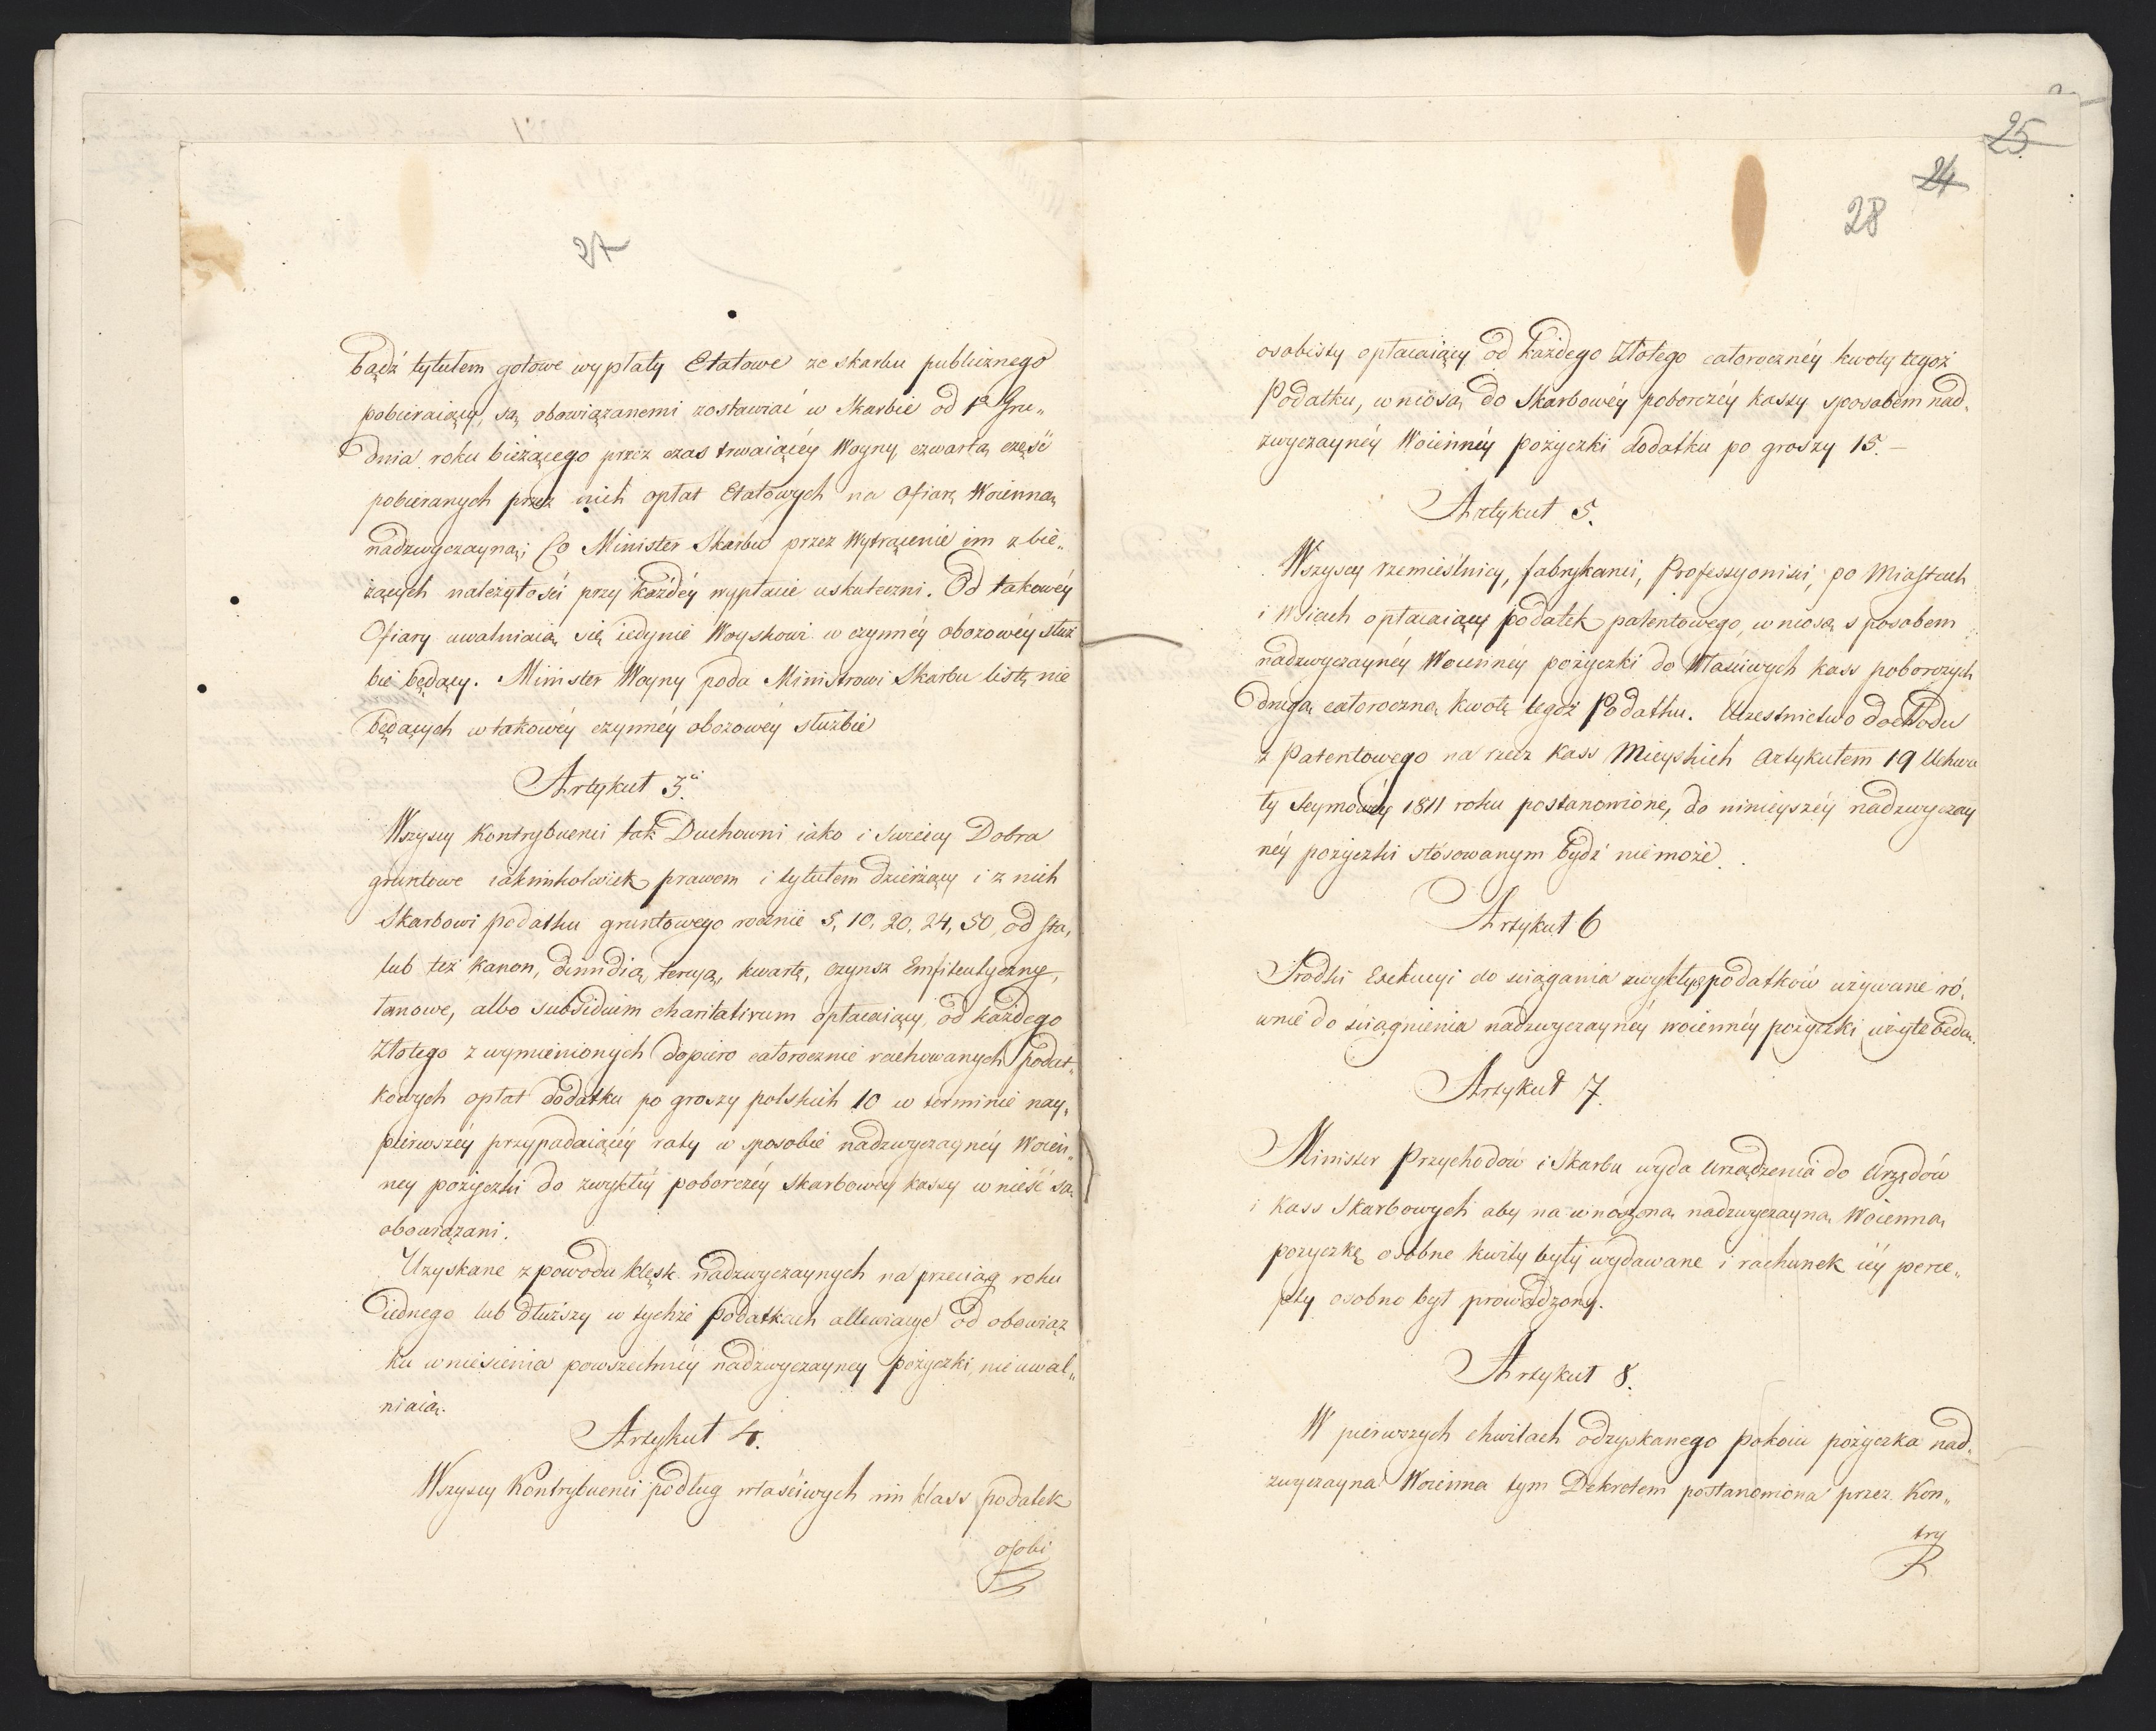 27
bądź tytułem gotowe wypłaty Etatowe ze skarbu publicznego
pobieraiący, są obowiązanemi zostawiać w Skarbie od 1o Gru„
dnia roku bieżącego przez czas trwaiącéy Woyny, czwartą część
pobieranych przez nich opłat Etatowych na Ofiarę Woienną
nadzwyczayną; Co Minister Skarbu przez Wytrącenie im z bie„
żących należytości przy każdéy wypłacie uskuteczni. Od takowéy
Ofiary uwalniaią się iedynie Woyskowi w czynnéy obozowéy służ
bie będący. Minister Woyny poda Ministrowi Skarbu listę nie
będących w takowéy czynnéy obozowéy służbie
Artykuł 3o.
Wszyscy Kontrybuenci tak Duchowni iako i Swieccy Dobra
gruntowe iakimkolwiek prawem i tytułem dzierżący i z nich
Skarbowi podatku gruntowego rocznie 5, 10, 20, 24, 50, od sta,
lub też Kanon, dimidią, tercyą, kwartę, czynsz Emfiteutyczny,
łanowe, albo subsidium charitativum opłacaiący, od każdego
Złotego z wymienionych dopiero całorocznie rachowanych podat„
kowych opłat dodatku po groszy polskich 10 w terminie nay„
pierwszéy przypadaiącéy raty w sposobie nadzwyczaynéy Woien„
ney pożyczki do zwykłéy poborczéy skarbowéy kassy wnieść są
obowiązani.
Uzyskane z powodu klęsk nadzwyczaynych na przeciąg roku
iednego lub dłuższy w tychże podatkach allewiacye od obowiąz
ku wniesienia powszechnéy nadzwyczayney pożyczki, nie uwal„
niaią.
Artykuł 4.
Wszyscy Kontrybuenci podług właściwych im klass podatek
osobi
25
24
28
osobisty opłacaiący od każdego Złotego całorocznéy kwoty tegoż
Podatku, wniosą do Skarbowéy poborczéy kassy sposobem nad„
zwyczaynéy Woiennéy pożyczki dodatku po groszy 15. –
Artykuł 5.
Wszyscy rzemieślnicy, fabrykanci, Professyoniści, po Miastach
i Wsiach opłacaiący podatek patentowego, wniosą sposobem
nadzwyczaynéy Woiennéy pożyczki do Właściwych kass poborczych
drugą całoroczną kwotę tegoż Podatku. Uczestnictwo dochodu
z Patentowego na rzecz Kass Mieyskich Artykułem 19 Uchwa
ły Seymowéy 1811 roku postanowione, do ninieyszéy nadzwyczay
néy pożyczki stósowanym bydź nie może.
Artykuł 6
Srodki Exekucyi do ściągania zwykłych podatków używane ró„
wnie do ściągnienia nadzwyczaynéy woiennéy pożyczki użyte będą.
Artykuł 7.
Minister Przychodów i Skarbu wyda Urządzenia do Urzędów
i Kass Skarbowych aby na wnoszoną nadzwyczayną Woienną
pożyczkę osobne kwity były wydawane i rachunek iéy perce„
pty osobno był prowadzony.
Artykuł 8.
W pierwszych chwilach odzyskanego Pokoiu pożyczka nad„
zwyczayna Woienna tym Dekretem postanowiona przez Kon„
try